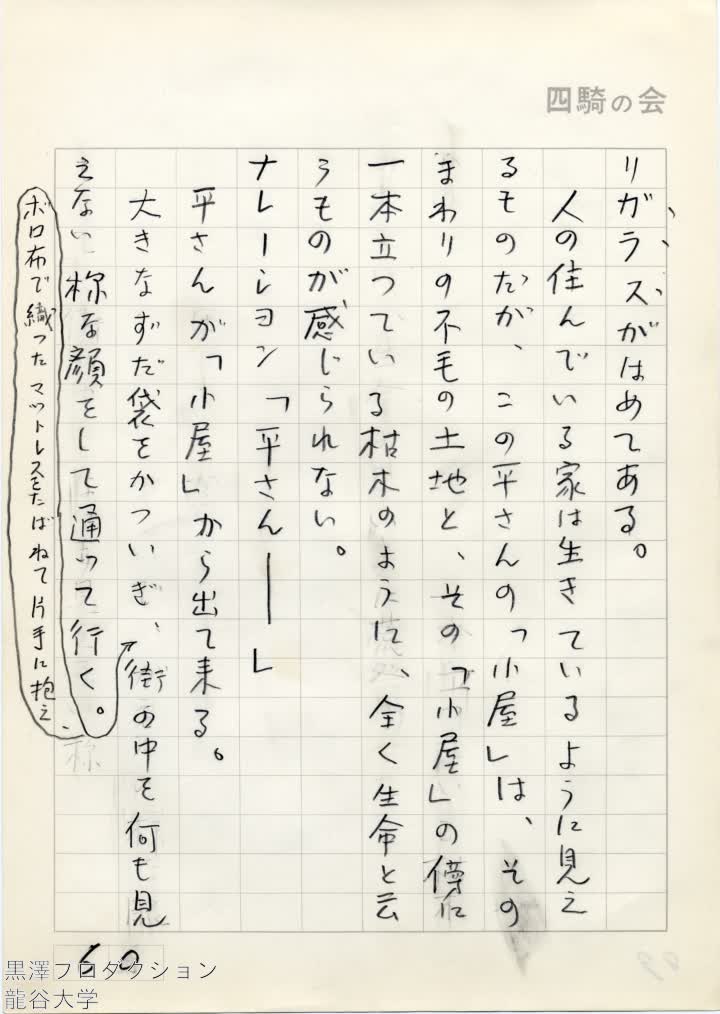 四騎の会
リガラスがはめてある。
人の住んでいる家は生きているように見え
るものだが、この平さんの「小屋」は、その
まわりの不毛の土地と、その「小屋」の傍に
一本立つている枯木のように、全く生命と云
うものが感じられない。
ナレーション「平さん――」
平さんが「小屋」から出て来る。
大きなずだ袋をかついぎ、街の中を何も見
えない様な顔をして通って行く。
ボロ布で織ったマットレスをたばねて片手に抱え、
60
黒澤プロダクション
龍谷大学